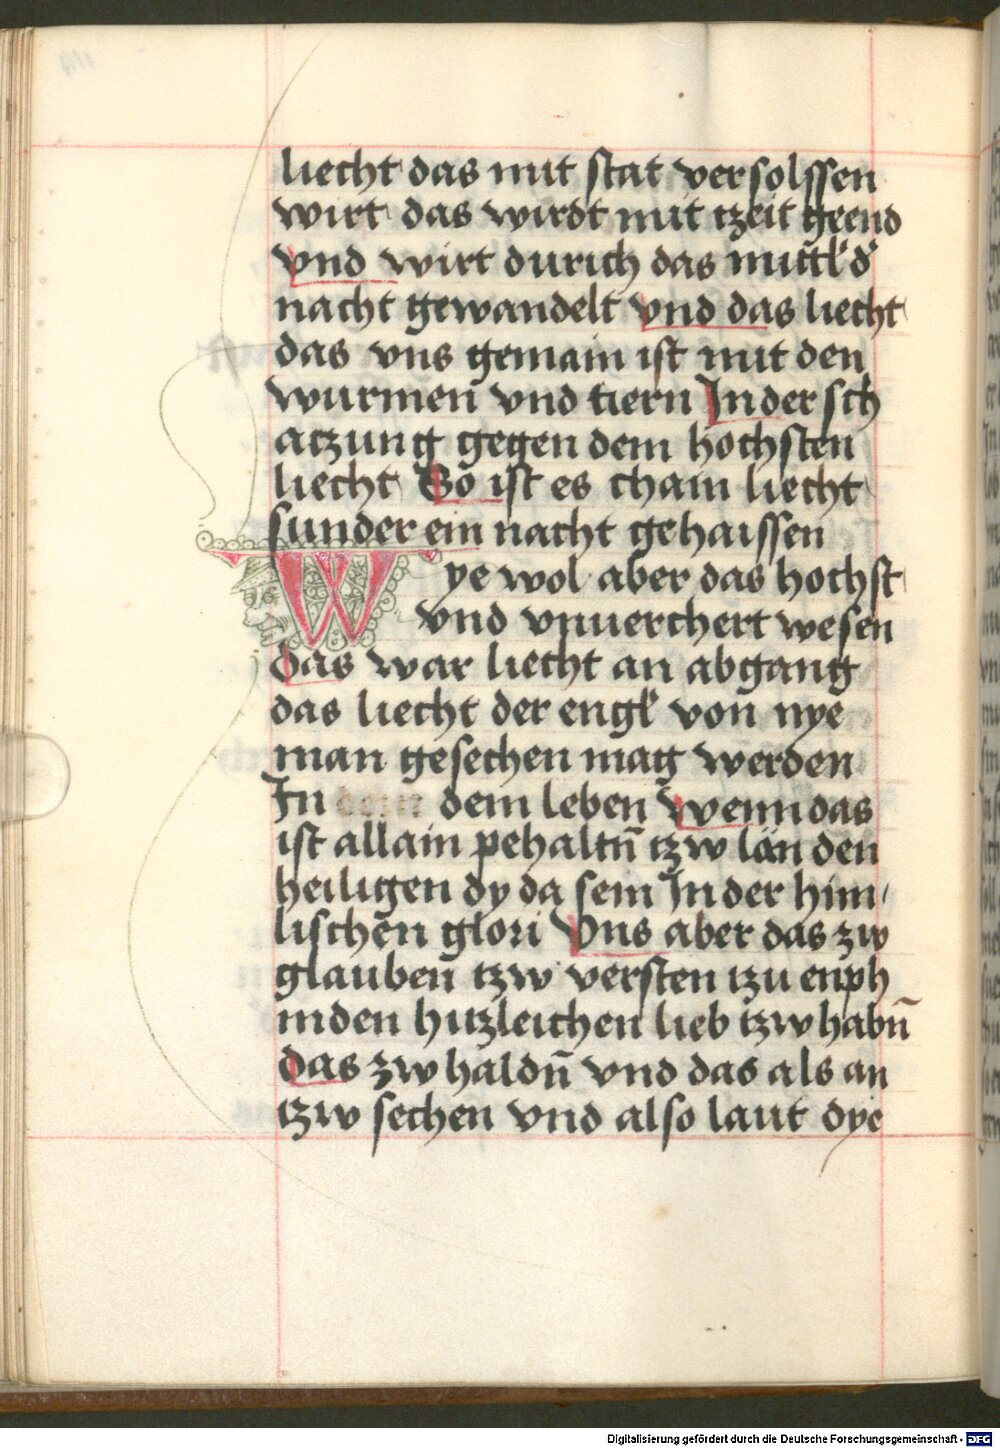 liecht das mit stat versolssen
wirt das wirdt mit tzeit geend
vnd wirt durich das mittl d̕
nacht gewandelt vnd das liecht
das vns gemain ist mit den
wurmen̄ vnd tiern In der sch
atzung gegen dem hochsten
liecht So ist es cham liecht
sunder ein nacht gehaissen
Wye wol aber das hochst
vnd vnuerchert wesen
das war liecht an abgang
das liecht der engl̕ von nye
man gesechen mag werden
In dem leben Wenn das
ist allain pehaltn̄ tzw län den
heiligen dy da sein In der him
lischen glori Vns aber das zw
glauben̄ tzw versten tzu enph
inden hitzleichen lieb tzw habn̄
das zw haldn̄ vnd das als an
tzw sechen vnd also laut dye
Digitalisierung gefördert durch die Deutsche Forschungsgemeinschaft - DFG